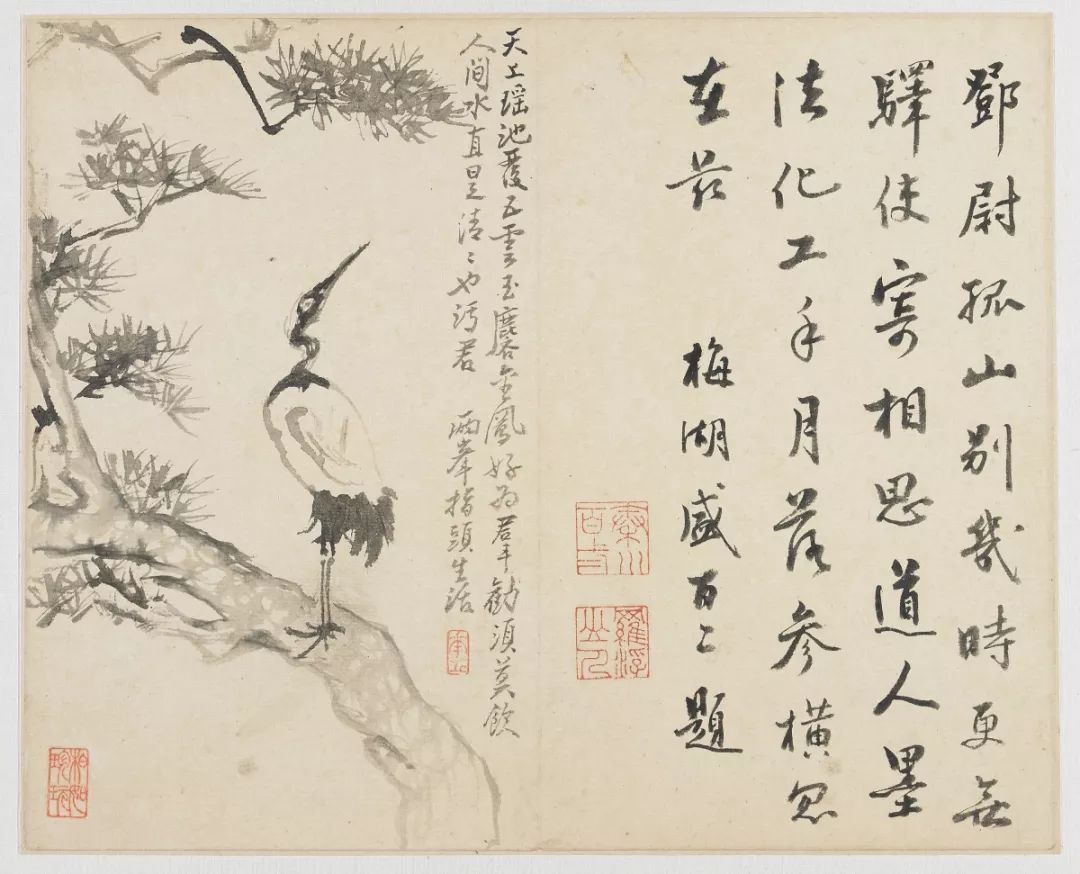 鄧尉孤山別幾時更無
驛使寄相思道人墨
法化工手月落參橫忽
在茲 梅湖盛百二題
羅浮山人
天上瑤池覆五雲玉麐金鳳好為羣勸須莫飲
人間水直是清〻也污君 兩峯指頭生活